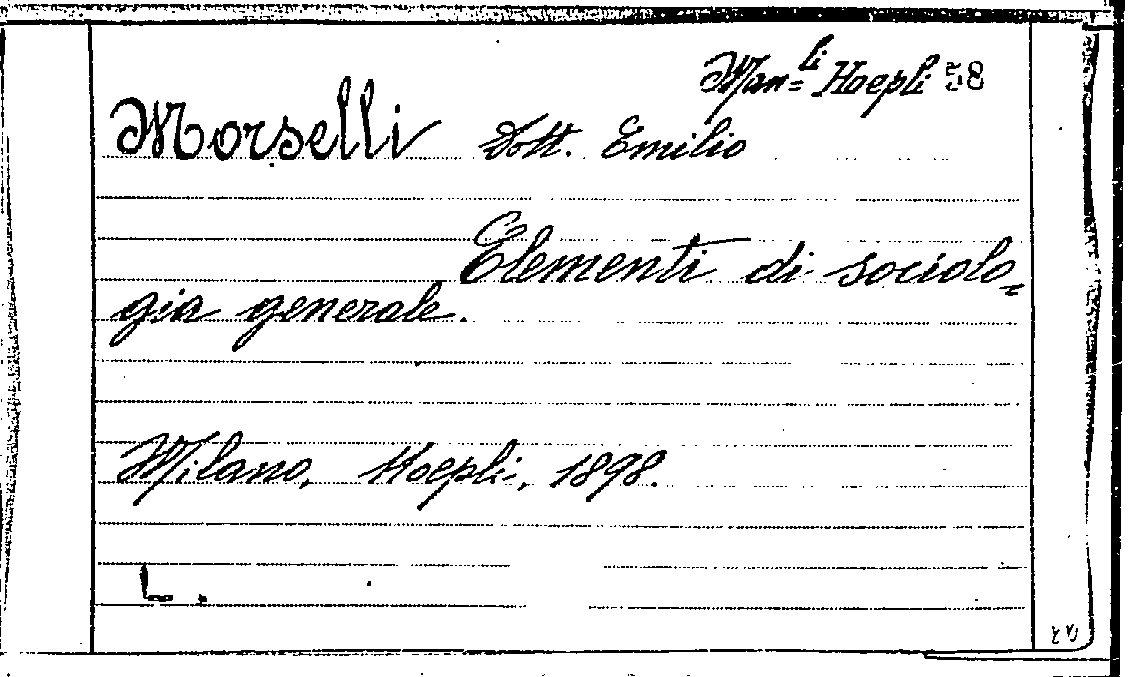 Man=li Hoepli 58
Morselli Dott. Emilio
Elementi di sociolo=
gia generale.
Milano, Hoepli, 1898.
L.